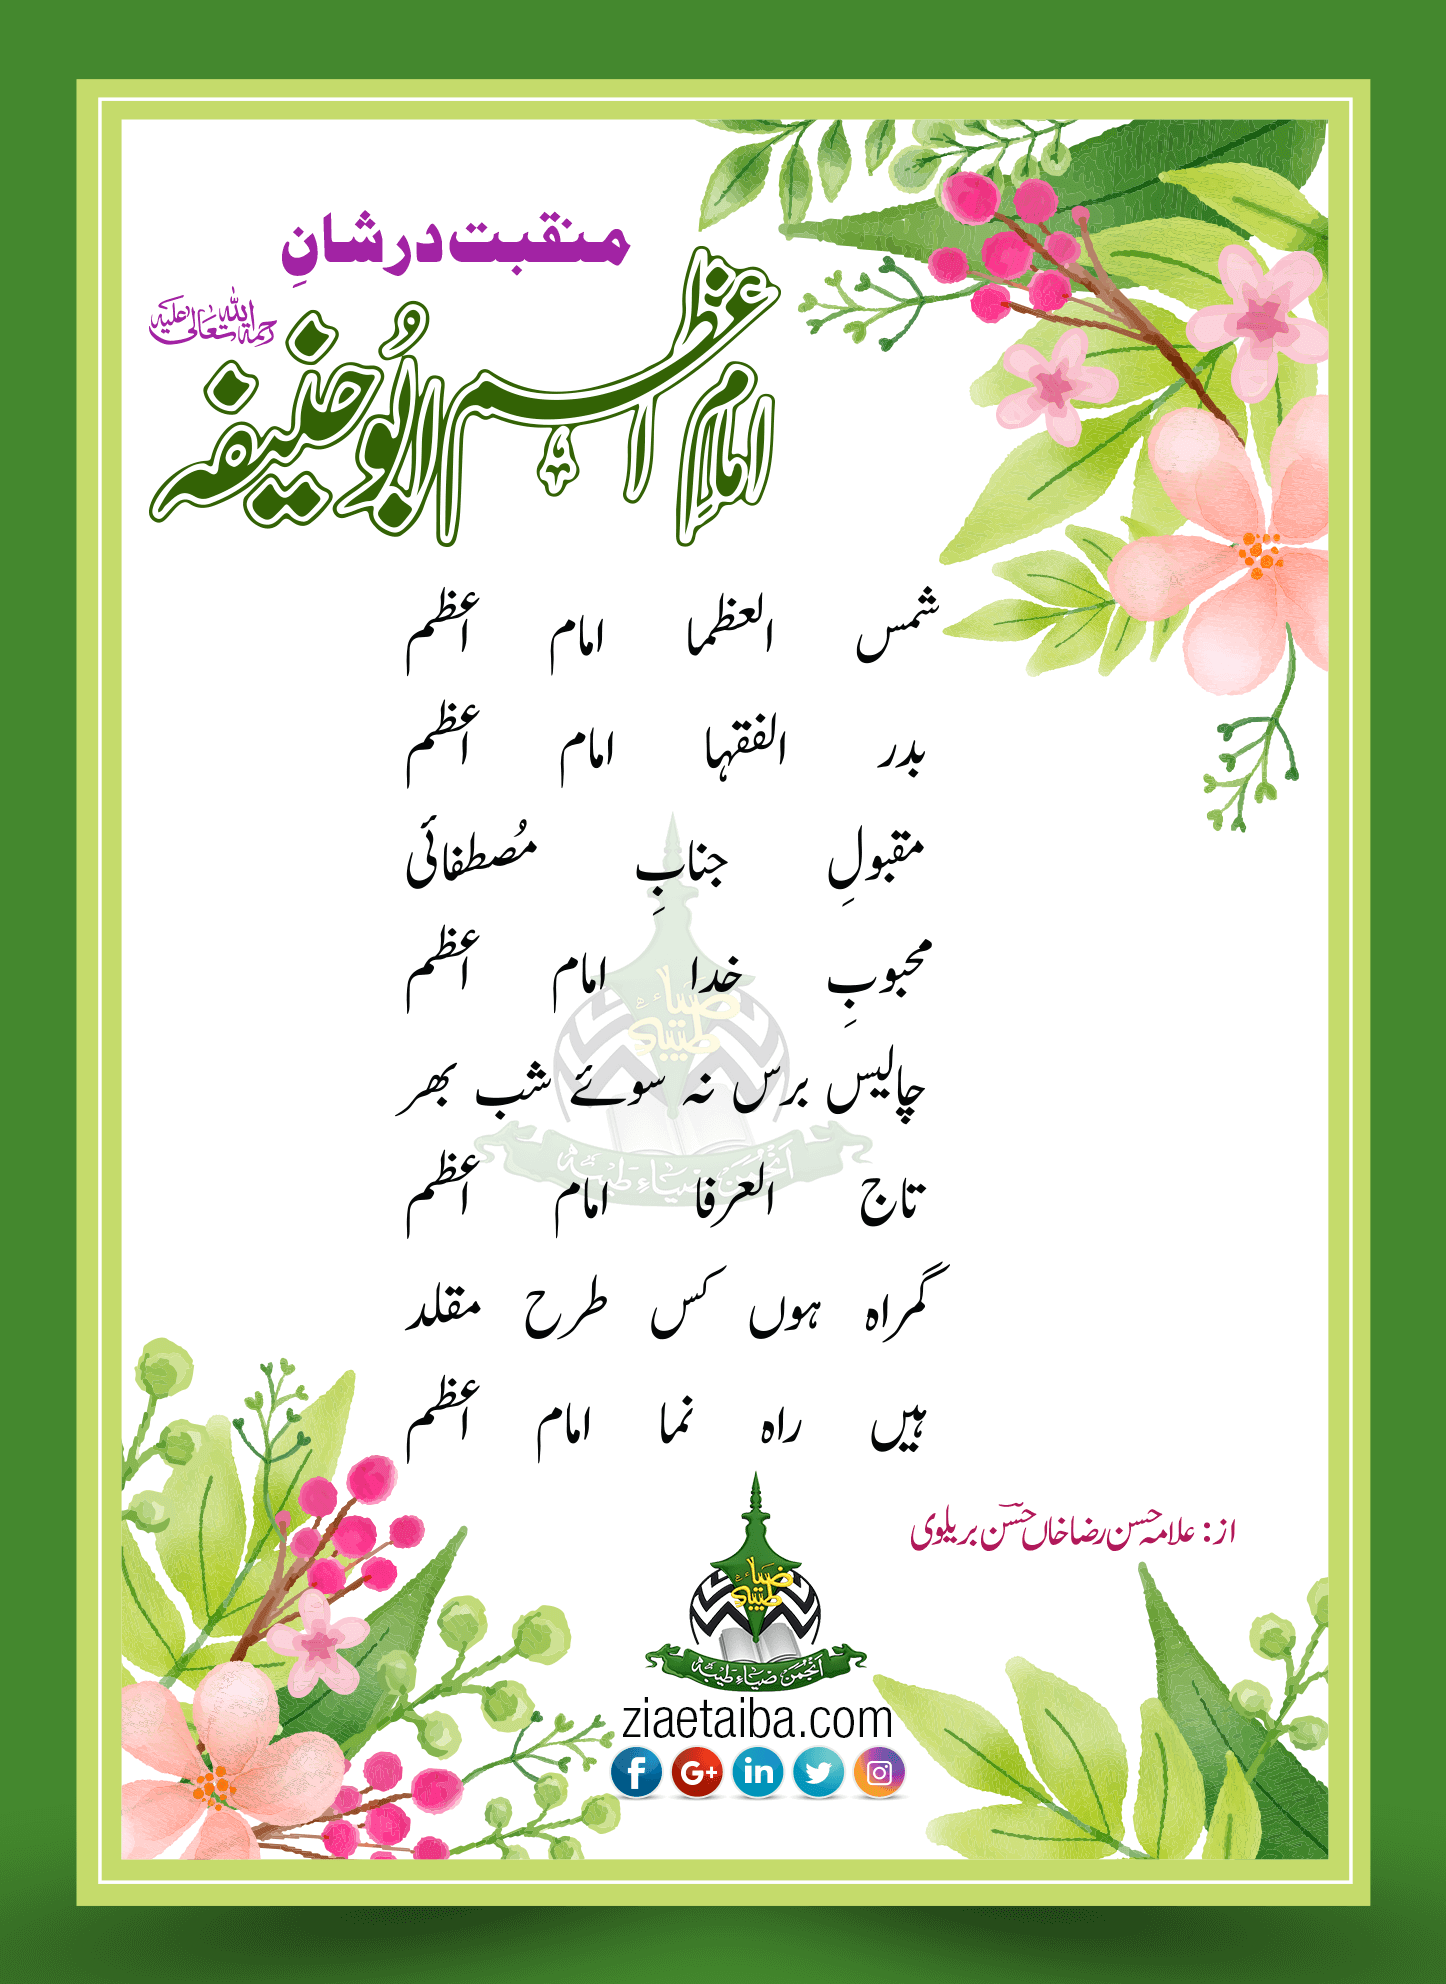 منقبت در شانِ
امامِ اعظم ابُو حنیفہ
رحمۃ اللہ تعالیٰ علیہ
شمس العظما امام اعظم
بدر الفقہا امام اعظم
مقبولِ جنابِ مُصطفائی
محبوبِ خدا امام اعظم
چالیس برس نہ سوئے شب بھر
تاج العرفا امام اعظم
گمراہ ہوں کس طرح مقلد
ہیں راہ نما امام اعظم
از: علامہ حسن رضا خاں حسنؔ بریلوی
ضیاء طیبہ
انجمن ضیاءِ طیبہ
ziaetaiba.com